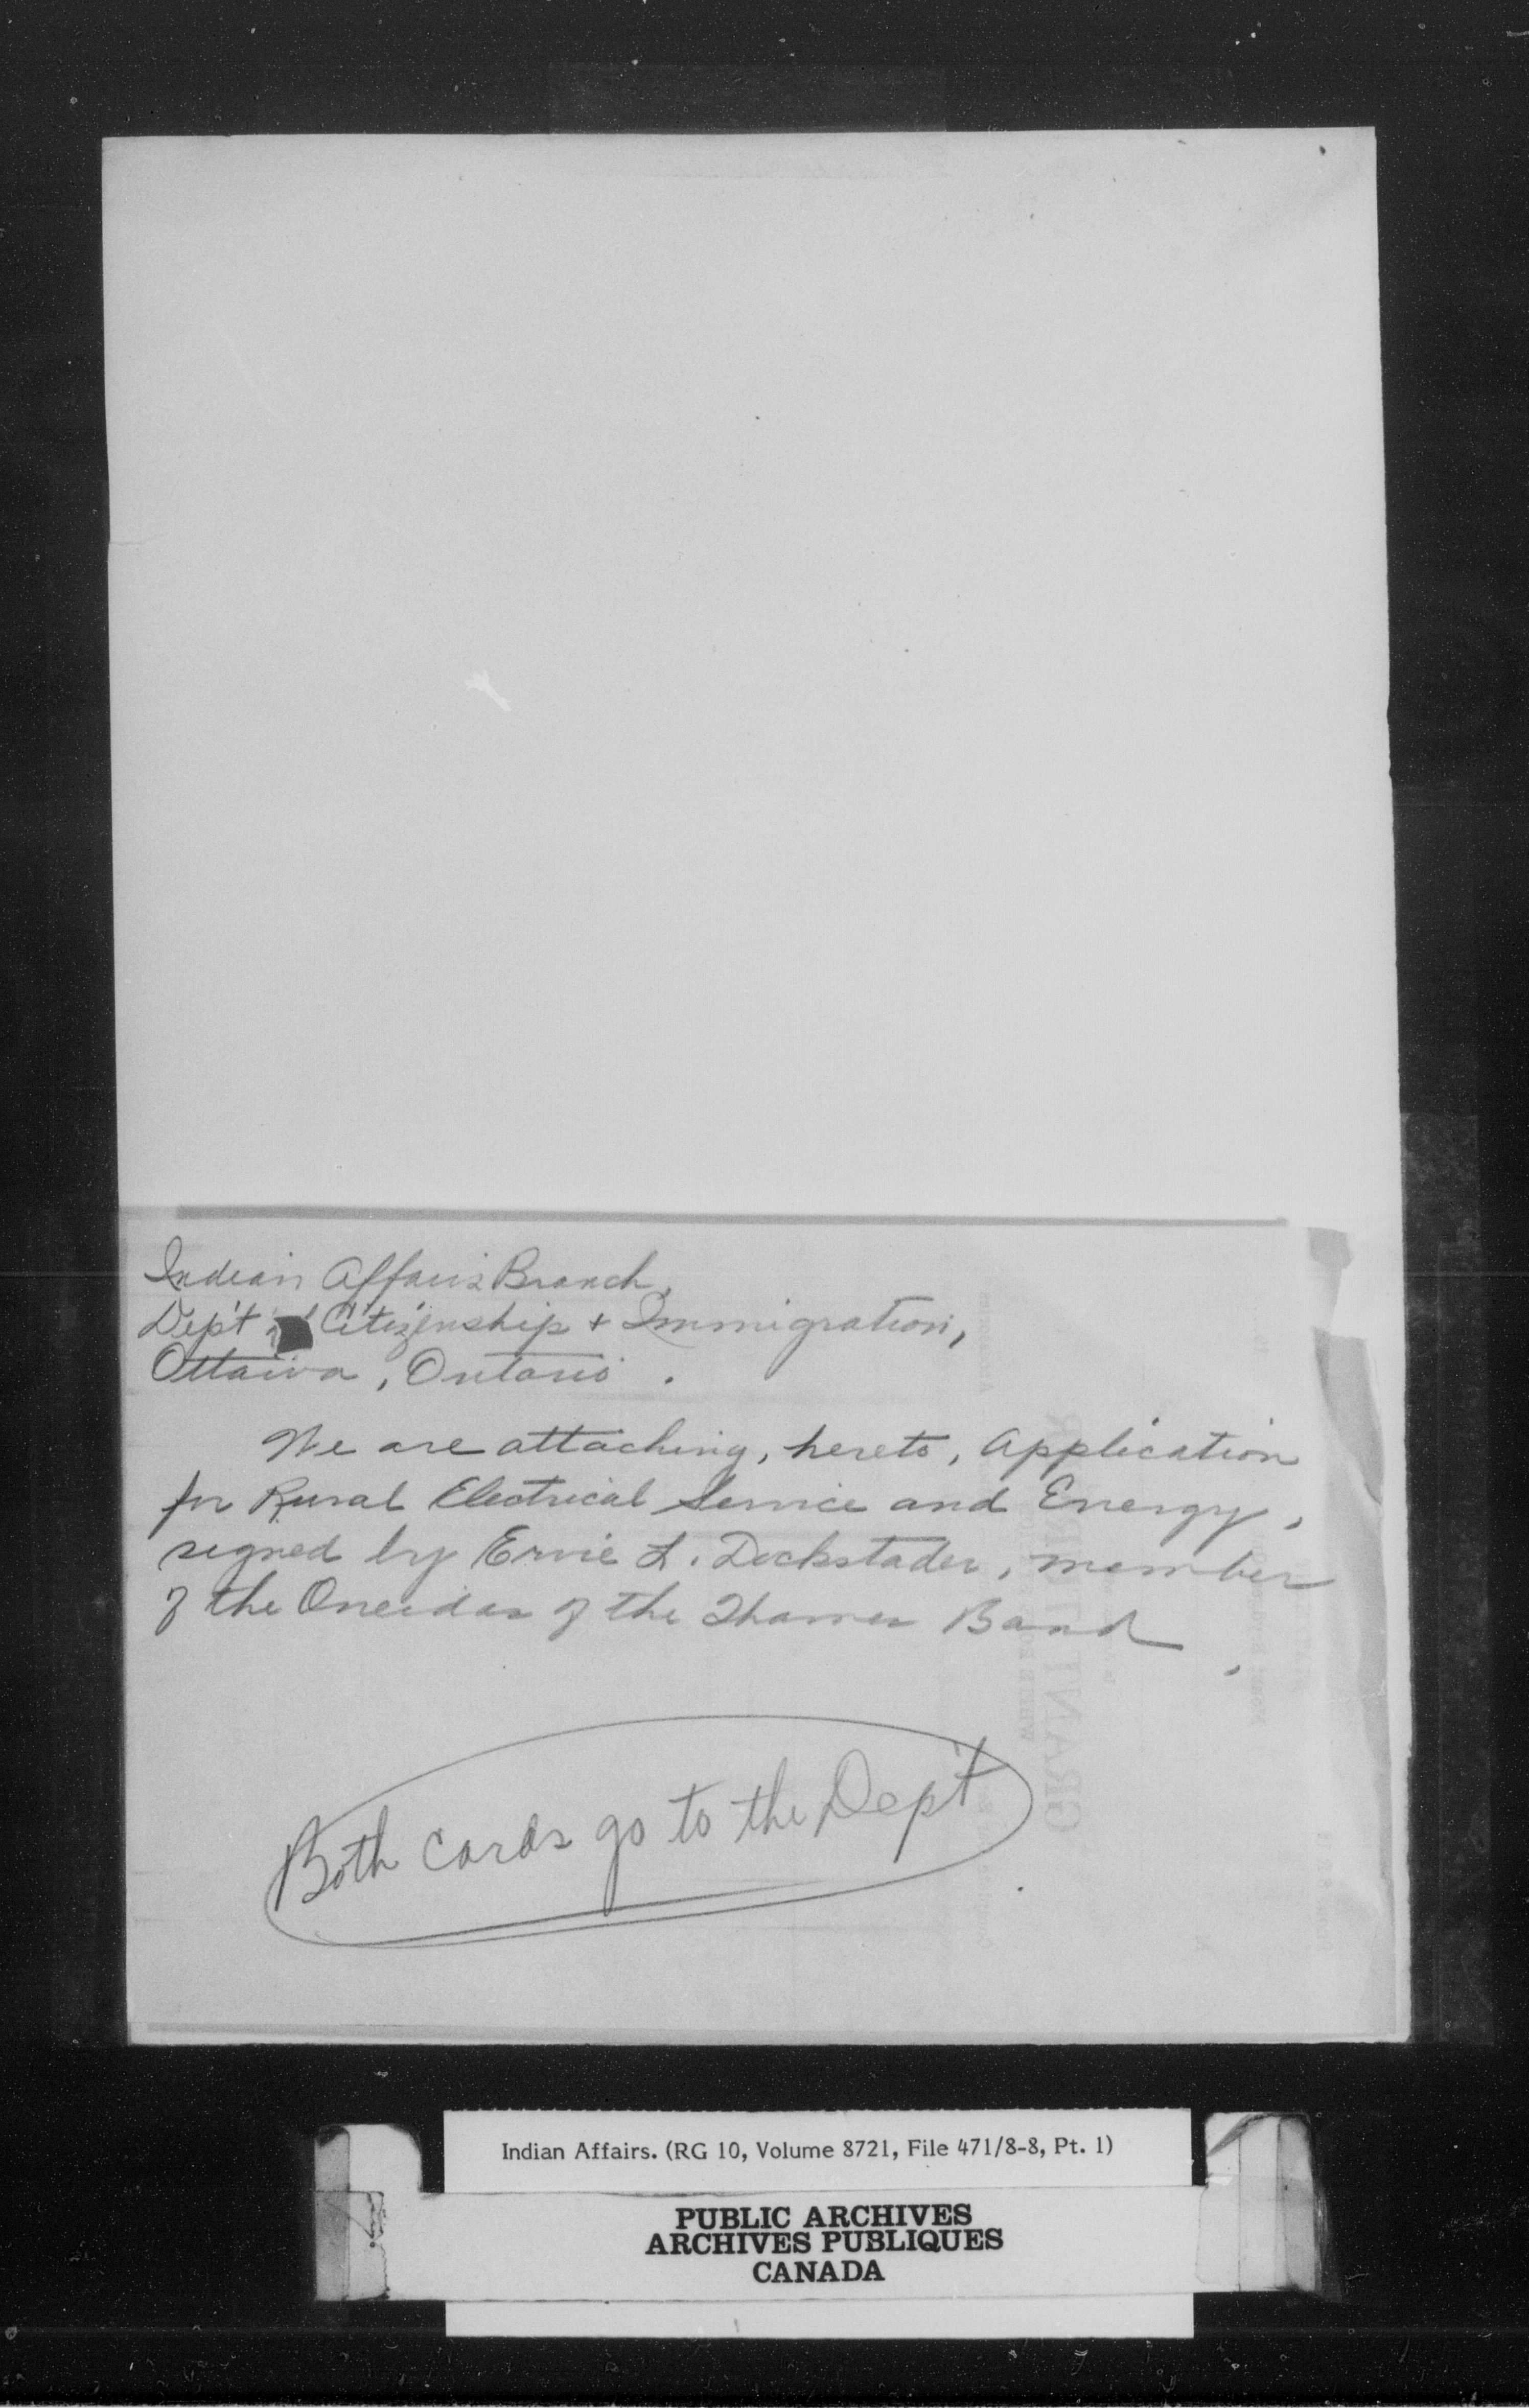 Indian Affairs Branch,
Dep't of Citizenship + Immigration,
Ottawa, Ontario.
We are attaching, hereto, Application
for Rural Electrical Service and Energy,
signed by Ervie L. Dockstader, member
of the Oneidas of the Thames Band.
Both cards go to the Dep't
Indian Affairs. (RG 10, Volume 8721, File 471/8-8, Pt. 1)
PUBLIC ARCHIVES
ARCHIVES PUBLIQUES
CANADA